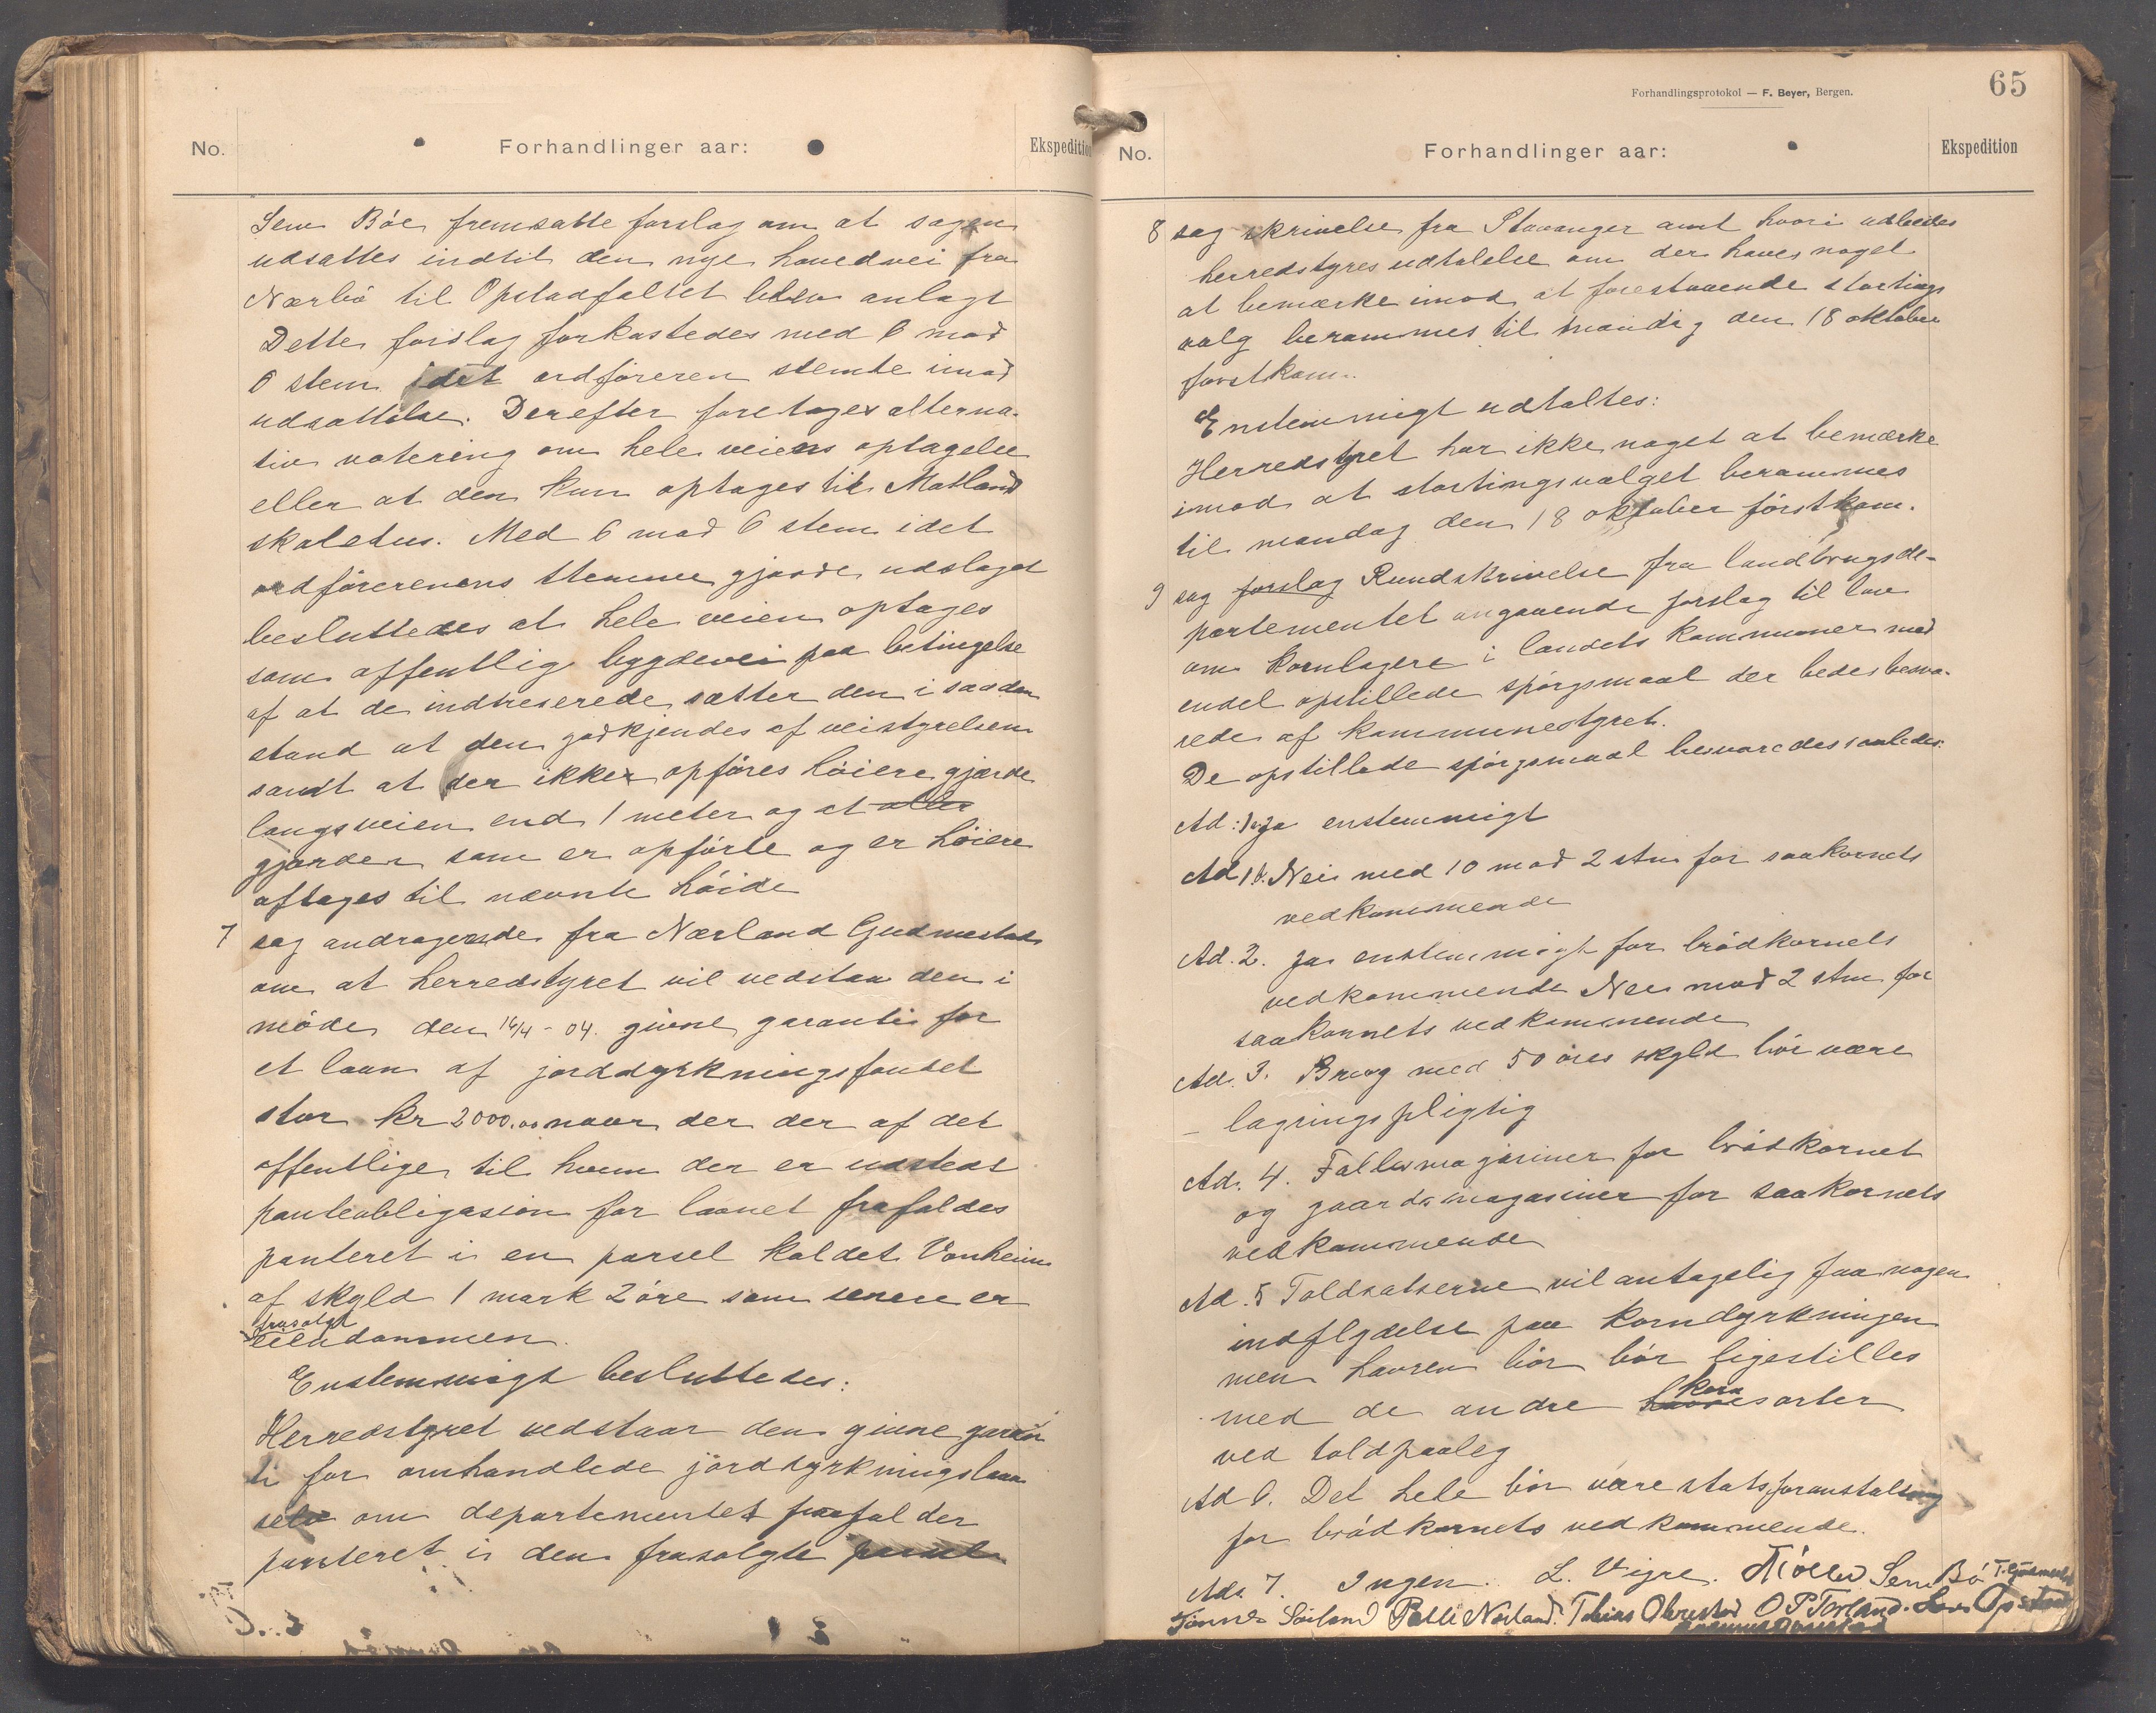 No.
Forhandlinger aar:
Ekspedition
Sem Böe fremsatte forslag om at sagen
udsattes indtil den nye hovedvei fra
Nærbö til Opstadfaltet blev anlagt
Dette forslag forkastedes med 6 mod
6 stem idet ordföreren stemte imod
udsættelse. Derefter foretoges alterna-
tiv votering om hele veiens optagelse
eller at den kun optages til Motland
skolehus. Med 6 mod 6 stem idet
ordförerenens stemme gjorde udslaget
besluttedes at hele veien optages
som offentlig bygdevei paa betingelse
af at de indtreserede sætter den i saadan
stand at den godkjendes af veistyrelsen
samt at der ikke opföres höiere gjærde
langs veien end 1 meter og at alle
gjærder som er opförte og er höiere
aftages til nævnte höide
7 sag andragende fra Nærland Gudmestad
om at herredstyret vil vedstaa den i
möde den 16/4 - 04. givne garanti for
et laan af jorddyrkningsfondet
stor kr 2000.00 naar der der af det
offentlige til hvem der er udstedt
panteobligasion for laanet frafaldes
panteret i en parsel kaldet Vonheim
af skyld 1 mark 2 öre som senere er
frasolgt
eiendommen.
Enstemmigt besluttedes:
Herredstyret vedstaar den givne garan
ti for omhandlede jorddyrkningslaan
selv om departementet frafalder
panteret i den frasolgte parsel
Forhandlingsprotokol — F. Beyer, Bergen.
65
No.
Forhandlinger aar:
Ekspedition
8 sag skrivelse fra Stavanger amt hvori udbedes
herredstyres udtalelse om der haves noget
at bemærke imod at forestaaende stortings
valg berammes til mandag den 18 oktober
förstkom.
Enstemmigt udtaltes:
Herredstyret har ikke noget at bemærke
imod at stortingsvalget berammes
til mandag den 18 oktober förstkom.
9 sag forslag Rundskrivelse fra landbrugsde-
partementet angaaende forslag til lov
om kornlagere i landets kommuner med
endel opstillede spörgsmaal der bedes besva-
rede af kommunestyret.
De opstillede spörgsmaal besvaredes saaledes:
Ad: 1a ja enstemmigt
Ad 1b. Nei med 10 mod 2 stm for saakornets
vedkommende
Ad. 2. Ja enstemmigt for brödkornets
vedkommende Nei mod 2 stm for
saakornets vedkommende
Ad. 3. Brug med 50 öres skyld bör være
lagringspligtig
Ad. 4. Fællesmagasiner for brödkornet
og gaardsmagasiner for saakornets
vedkommende
Ad. 5 Toldsatserne vil antagelig faa nogen
indflydelse paa korndyrkningen
men havren bör bör ligestilles
korn
med de andre havresorter
ved toldpaalæg
Ad 6. Det hele bör være statsforanstaltning
for brödkornets vedkommende.
Ad. 7. Ingen. L. Vigre. Sem Bö
Söiland Nærland. Tobias Obrestad O P Torland. Opstad